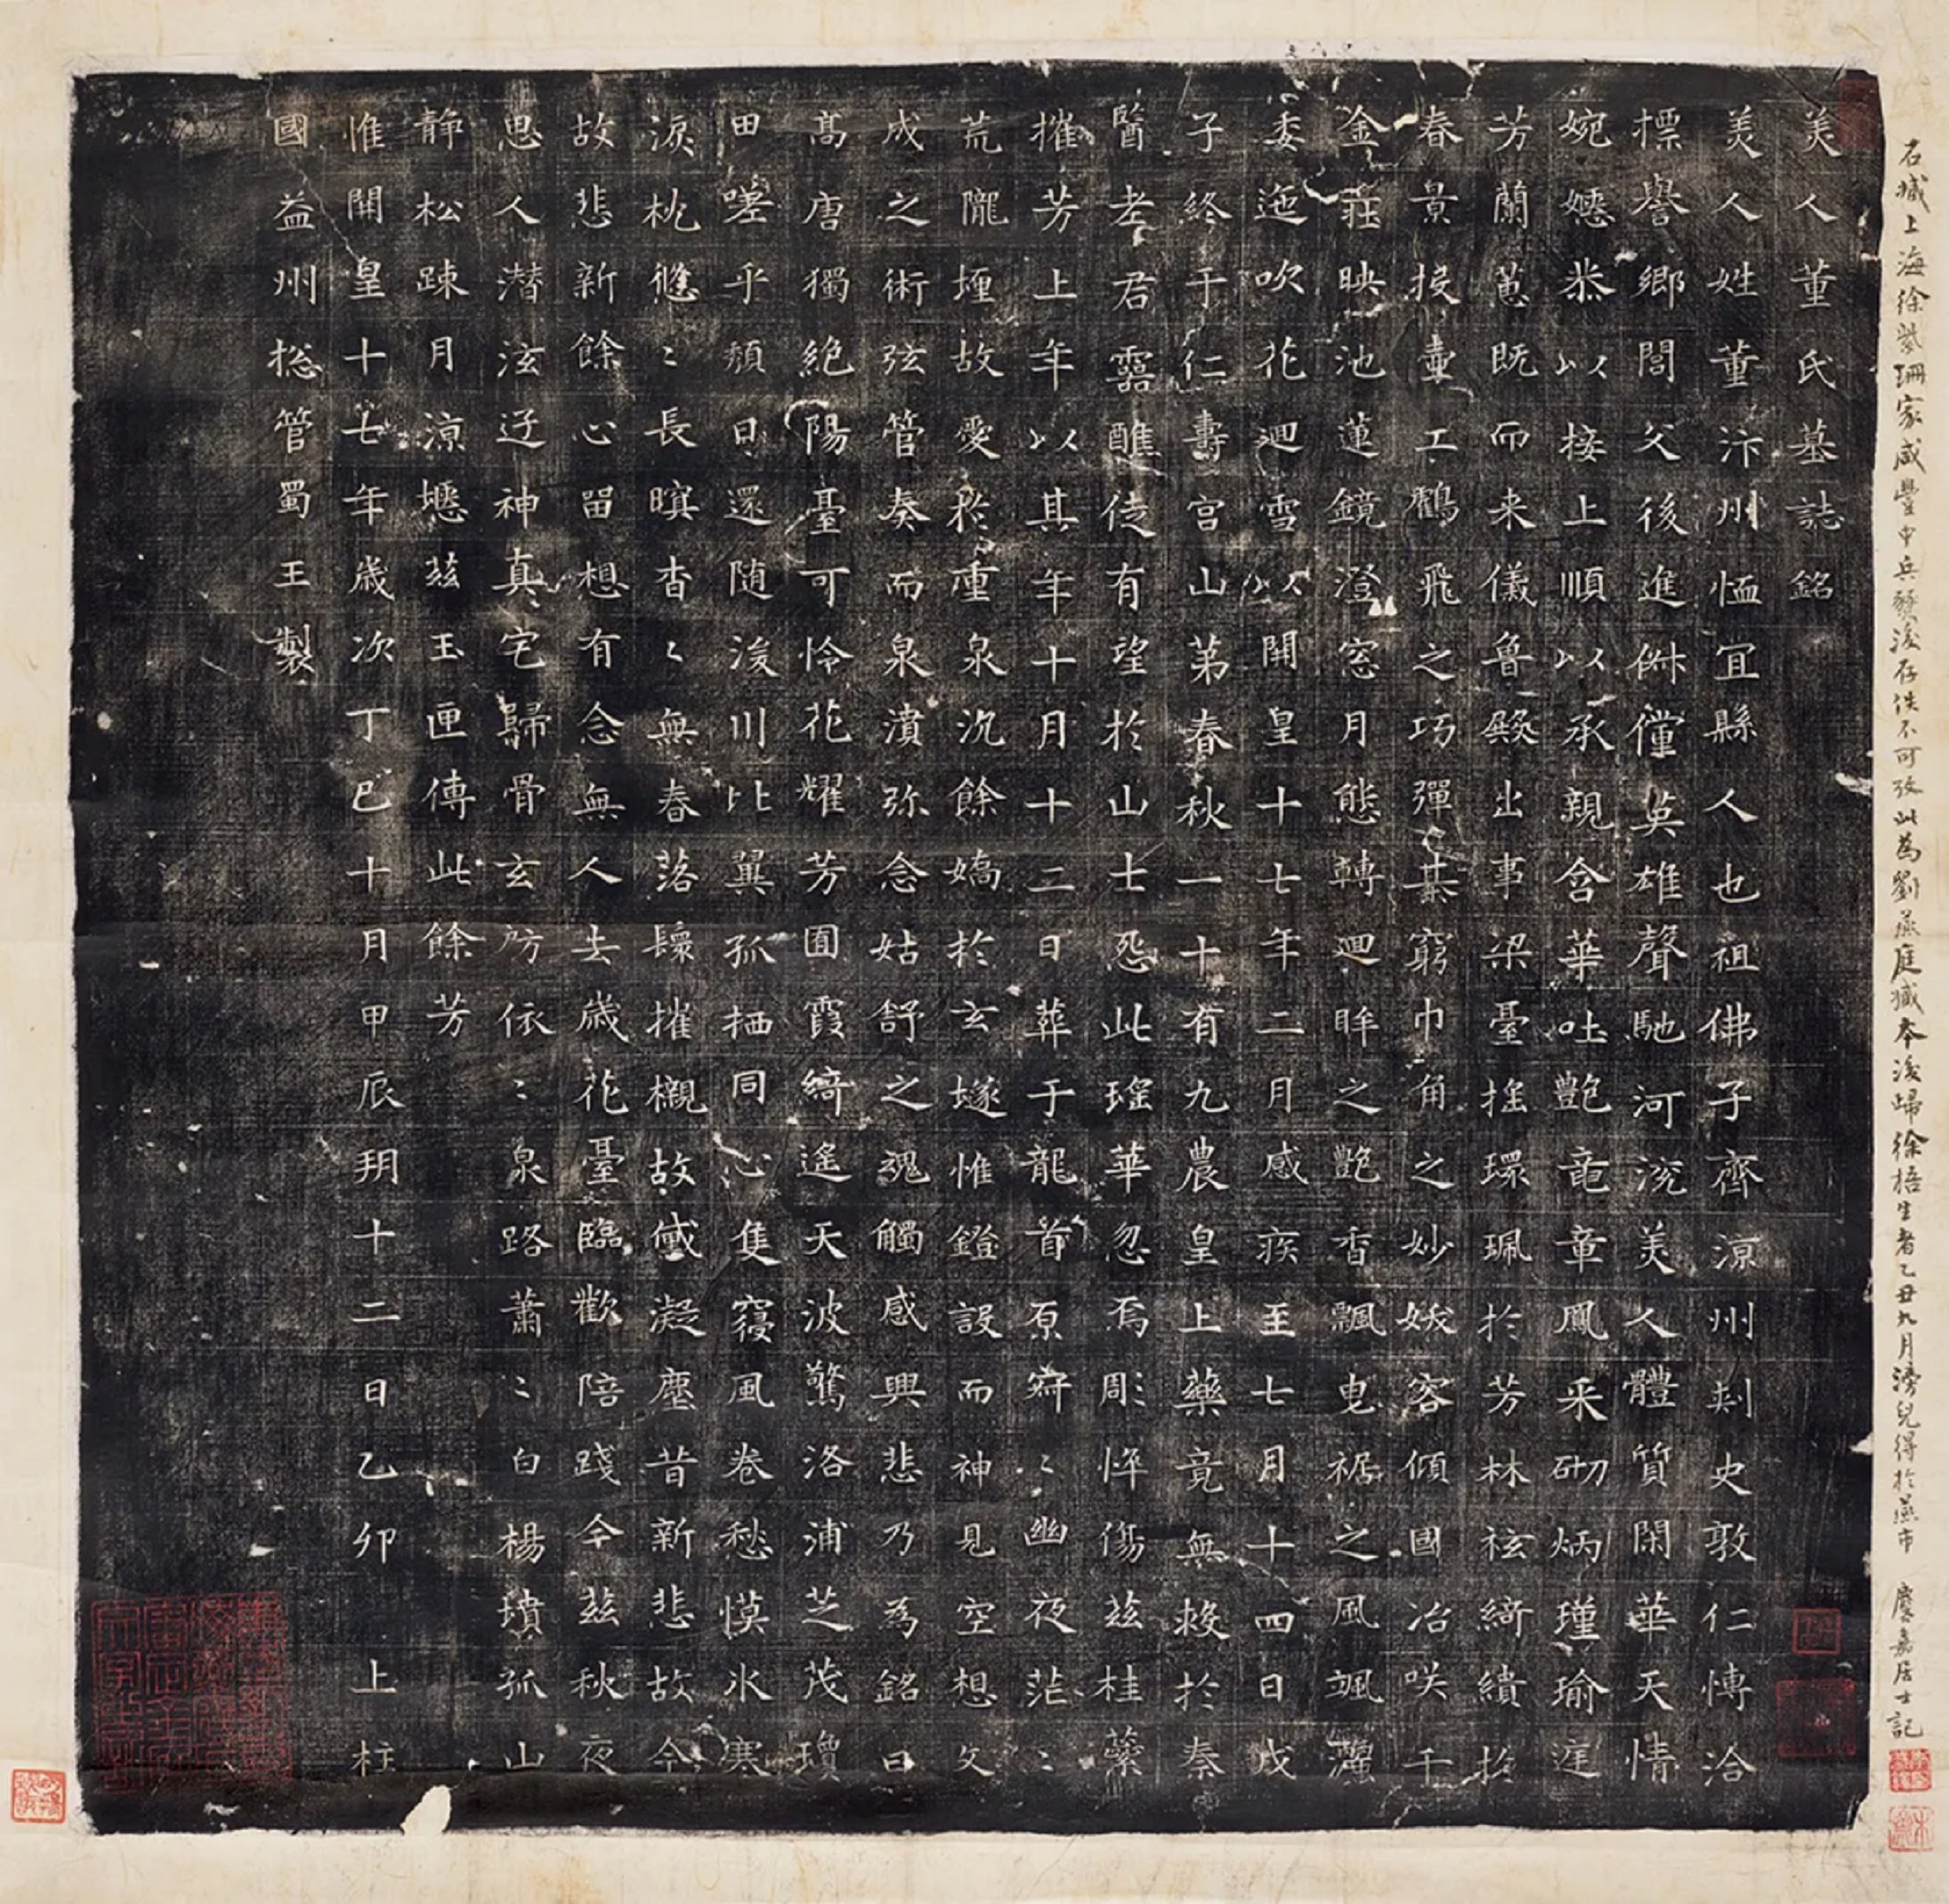 美人董氏墓誌銘
美人姓董汴州恤宜縣人也祖佛子齊涼州刾史敦仁愽洽
摽譽鄉閭父後進俶儻英雄聲馳河兗美人體質閑華天情
婉嫕恭以接上順以承親含華吐艷竜章鳳采砌炳瑾瑜庭
芳蘭蕙既而来儀魯殿出事梁臺搖環珮於芳林袨綺繢扵
春景投壷工鶴飛之巧彈棊窮巾角之妙妖容傾國冶咲千
金莊映池蓮鏡澄窓月態轉迴眸之艷香飄曳裾之風颯灑
委迤吹花迴雪以開皇十七年二月感疾至七月十四日戊
子終于仁壽宮山第春秋一十有九農皇上藥竟無救扵秦
醫老君靈醮徒有望扵山士怨此瑤華忽焉彫悴傷茲桂蘂
摧芳上年以其年十月十二日葬于龍首原寂〻幽夜茫〻
荒隴堙故愛扵重泉沉餘嬌扵玄墜惟鐙設而神見空想文
成之術弦管奏而泉濆弥念姑舒之魂觸感興悲乃為銘曰
髙唐獨絶陽臺可怜花耀芳囿霞綺遙天波驚洛浦芝茂瓊
田嗟乎頹日還随浚川比翼孤栖同心隻寢風卷愁慔冰寒
淚枕悠〻長暝杳〻無春落鬟摧櫬故黛凝塵昔新悲故今
故悲新餘心留想有念無人去歲花臺臨歡陪踐今茲秋夜
思人潛泫迂神真宅歸骨玄房依〻泉路蕭〻白楊墳孤山
静松踈月涼壚茲玉匣傳此餘芳
惟開皇十七年歲次丁巳十月甲辰玥十二日乙卯 上柱
國益州総管蜀王製
石藏上海徐紫珊家咸豐中兵燹後存佚不可攷此為劉燕庭藏本後歸徐梧生者乙丑九月滂兒得於燕市 慶嘉居士記